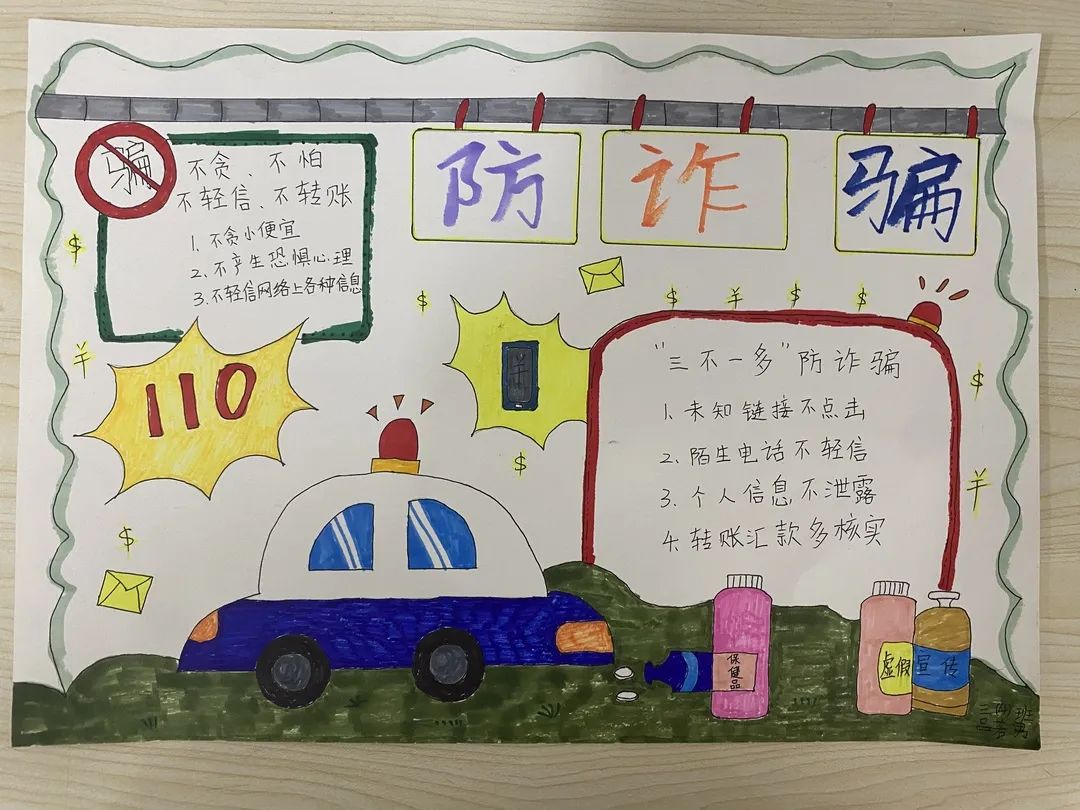 防 诈 骗
骗
不贪、不怕
不轻信、不转账
1. 不贪小便宜
2. 不产生恐惧心理
3. 不轻信网络上各种信息
110
"三不一多"防诈骗
1. 未知链接不点击
2. 陌生电话不轻信
3. 个人信息不泄露
4. 转账汇款多核实
保健品
虚假宣传